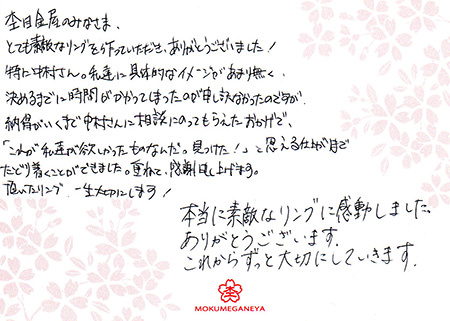 杢目金屋のみなさま、
とても素敵なリングを作っていただき、ありがとうございました！
特に中村さん。私達に具体的なイメージがあまり無く、
決めるまでに時間がかかってしまったのが申し訳なかったのですが、
納得がいくまで中村さんに相談にのってもらえたおかげで、
「これが私達が欲しかったものなんだ。見つけた！」と思える仕上がりまで
たどり着くことができました。重ねて、感謝申し上げます。
頂いたリング、一生大切にします！
本当に素敵なリングに感動しました。
ありがとうございます。
これからずっと大切にしていきます。
MOKUMEGANEYA